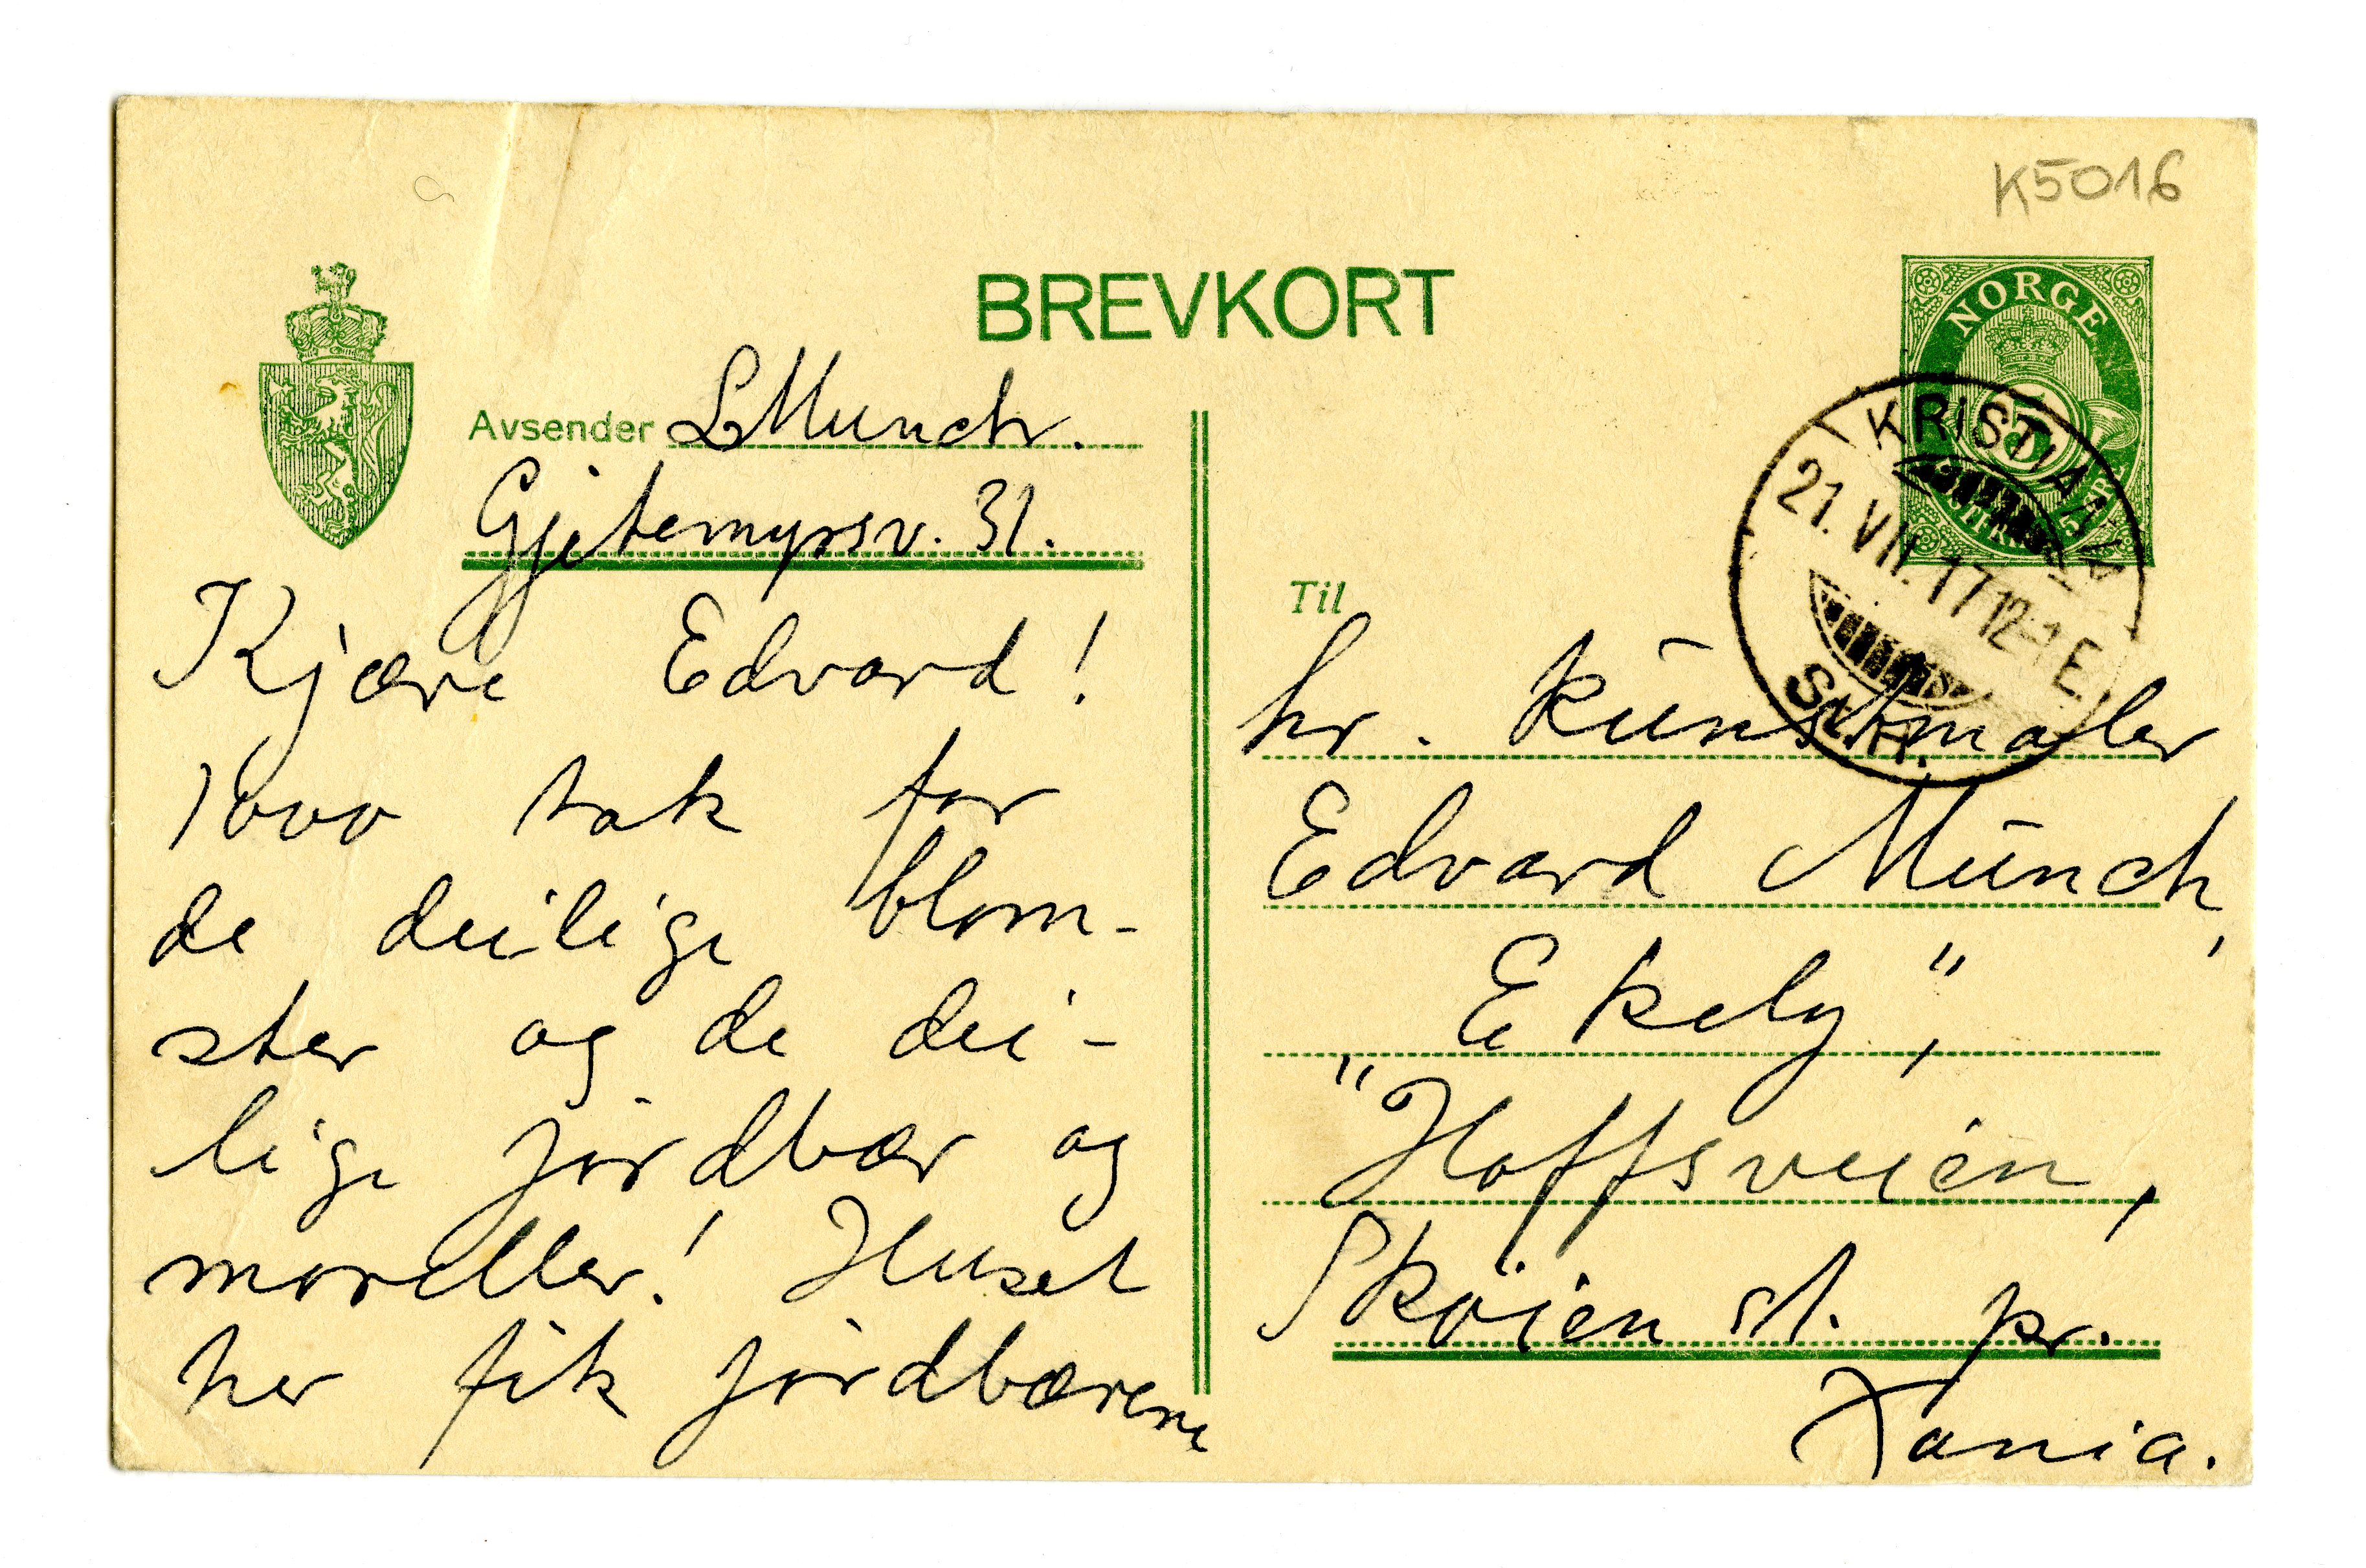 K5016
BREVKORT
NORGE
Avsender LMunch.
Gjetemyrsv. 31.
Kjære Edvard!
1000 tak for
de deilige blom-
ster og de dei-
lige jordbær og
moreller! Huset
her fik jordbærene
KRISTIANIA
21. VII. 17 12-1 E.
Til
hr. Kunstmaler
Edvard Munch,
"Ekely",
Hoffsveien,
Skøien st. pr.
Xania.